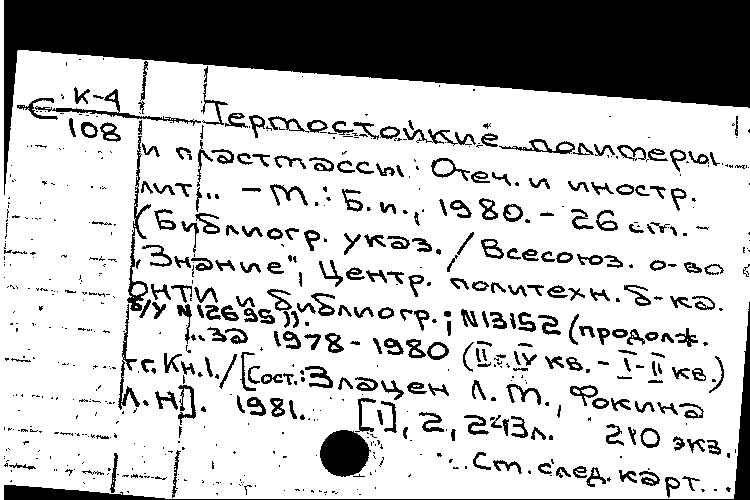 С К-4
108
Термостойкие полимеры
и пластмассы: Отеч. и иностр.
лит... – М.: Б.и., 1980. – 26 см. –
(Библиогр. указ. / Всесоюз. о-во
„Знание", Центр. политехн. б-ка.
ОНТИ и библиогр.; N13152 (продолж.
б/у N12695)).
...за 1978-1980 (II-IV кв. – I-II кв.)
Кн.1./[Сост.: Злацен Л.М., Фокина
Л.Н.]. 1981. [1], 2, 243л. 210 экз.
См. след. карт...